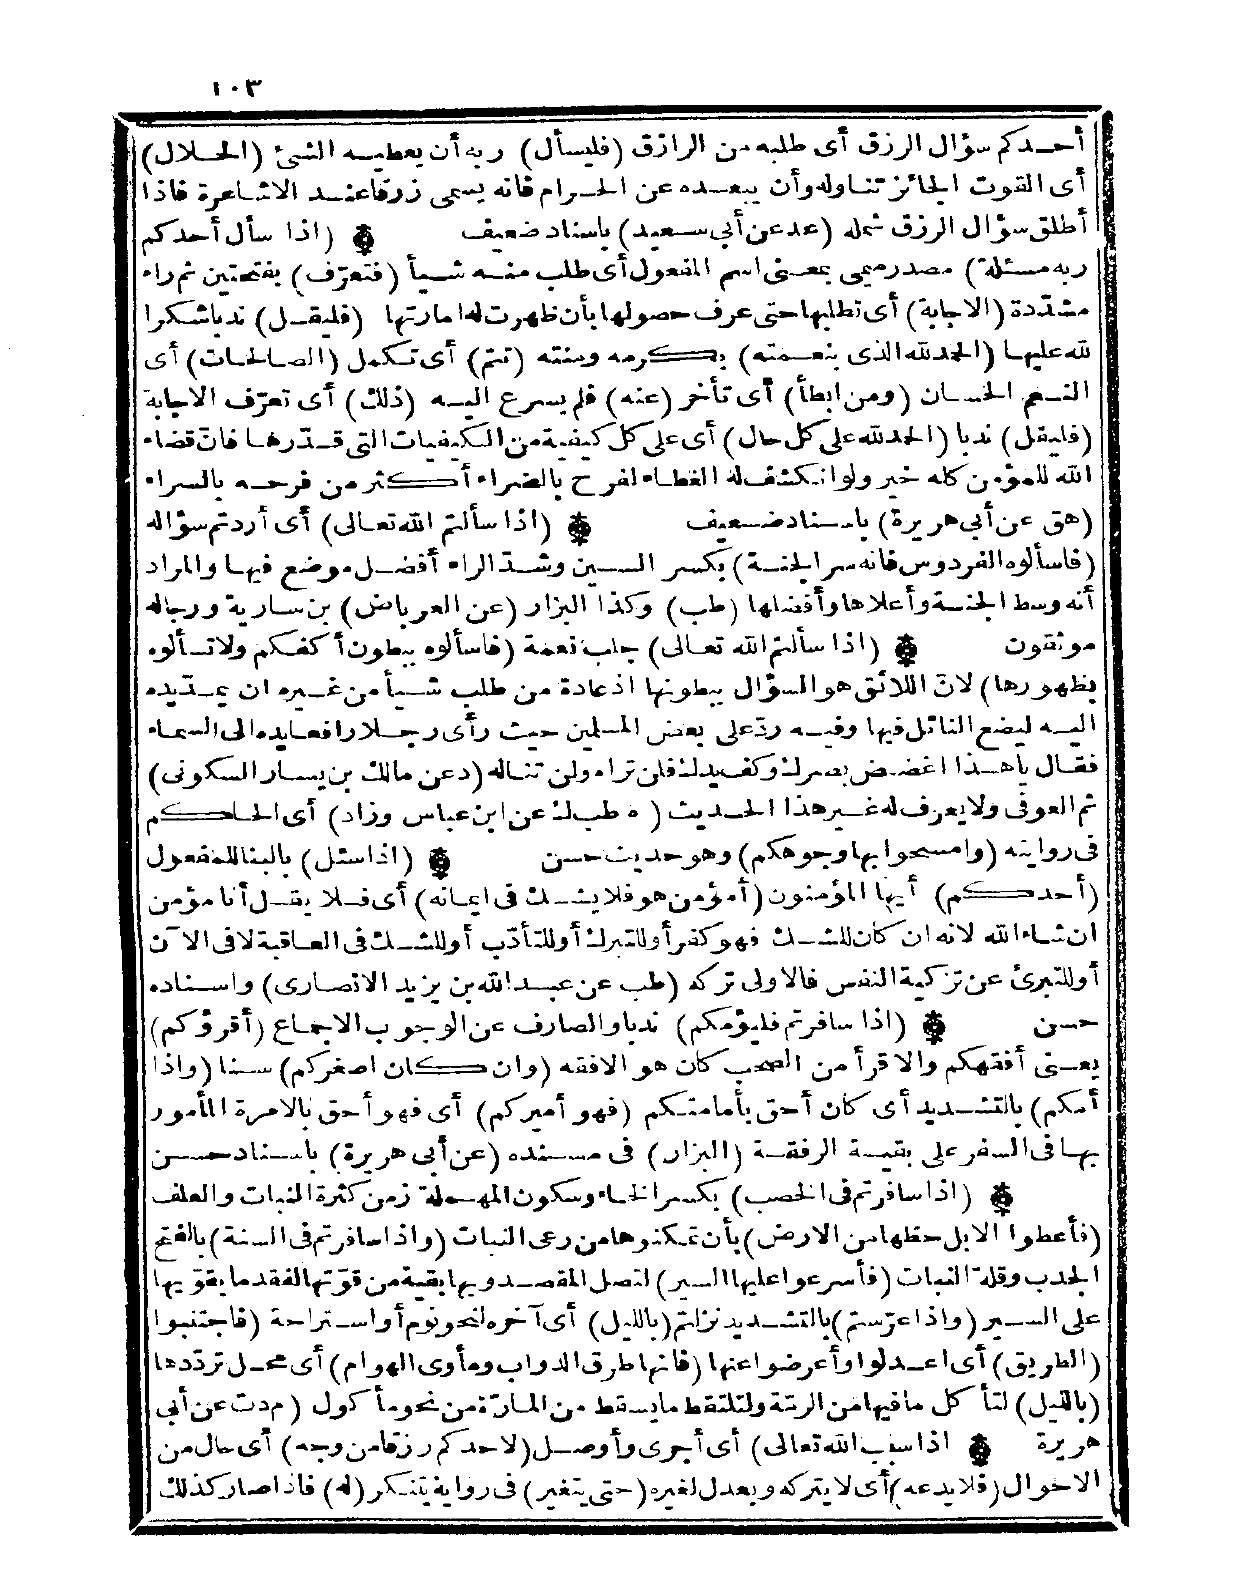 ١٠٣
أحدكم سؤال الرزق أى طلبه من الرازق (فليسأل) ربه أن يعطيه الشئ (الحلال)
أى القوت الجائز تناوله وأن يبعده عن الحرام فانه يسمى رزقا عند الاشاعرة فاذا
أطلق سؤال الرزق شمله (عد عن أبى سعيد) باسناد ضعيف ۞ (اذا سأل أحدكم
ربه مسئلة) مصدر ميمى بمعنى اسم المفعول أى طلب منه شيأ (فتعرّف) بفتحتين ثم راء
مشدّدة (الاجابة) أى تطلبها حتى عرف حصولها بأن ظهرت له امارتها (فليقل) ندبا شكرا
لله عليها (الحمد لله الذى بنعمته) بكرمه ومنته (تتم) أى تكمل (الصالحات) أى
النعم الحسان (ومن ابطأ) أى تأخر (عنه) فلم يسرع اليه (ذلك) أى تعرّف الاجابة
(فليقل) ندبا (الحمد لله على كل حال) أى على كل كيفية من الكيفيات التى قدّرها فانّ قضاء
الله للمؤمن كله خير ولو انكشف له الغطاء لفرح بالضراء أكثر من فرحه بالسراء
(هق عن أبى هريرة) باسناد ضعيف ۞ (اذا سألتم الله تعالى) أى أردتم سؤاله
(فاسألوه الفردوس فانه سر الجنة) بكسر السين وشدّ الراء أفضل موضع فيها والمراد
أنه وسط الجنة وأعلاها وأفضلها (طب) وكذا البزار (عن العرباض) بن سارية ورجاله
موثقون ۞ (اذا سألتم الله تعالى) جلب نعمة (فاسألوه ببطون أكفكم ولا تسألوه
بظهورها) لانّ اللائق هو السؤال ببطونها اذ عادة من طلب شيأ من غيره ان يمدّ يده
اليه ليضع النائل فيها وفيه ردّ على بعض المسلمين حيث رأى رجلا رافعا يده الى السماء
فقال يا هذا اغضض بصرك وكف يدك فلن تراه ولن تناله (د عن مالك بن يسار السكونى)
ثم العوفى ولا يعرف له غير هذا الحديث (ه طب ك عن ابن عباس وزاد) أى الحاكم
فى روايته (وامسحوا بها وجوهكم) وهو حديث حسن ۞ (اذا سئل) بالبناء للمفعول
(أحدكم) أيها المؤمنون (أمؤمن هو فلا يشك فى ايمانه) أى فلا يقل أنا مؤمن
ان شاء الله لانه ان كان للشك فهو كفر أو للتبرك أو للتأدّب أو للشك فى العاقبة لا فى الآن
أو للتبرئ عن تزكية النفس فالاولى تركه (طب عن عبد الله بن يزيد الانصارى) واسناده
حسن ۞ (اذا سافرتم فليؤمكم) ندبا والصارف عن الوجوب الاجماع (أقرؤكم)
يعنى أفقهكم والاقرأ من الصحب كان هو الافقه (وان كان اصغركم) سنا (واذا
أمكم) بالتشديد أى كان أحق بأمامتكم (فهو أميركم) أى فهو أحق بالامرة المأمور
بها فى السفر على بقية الرفقة (البزار) فى مسنده (عن أبى هريرة) باسناد حسن
۞ (اذا سافرتم فى الخصب) بكسر الخاء وسكون المهملة زمن كثرة النبات والعلف
(فأعطوا الابل حظها من الارض) بأن تمكنوها من رعى النبات (واذا سافرتم فى السنة) بالفتح
الجدب وقلة النبات (فأسرعوا عليها السير) لتصل المقصد وبها بقية من قوّتها لفقد ما يقوّيها
على السير (واذا عرّستم) بالتشديد نزلتم (بالليل) أى آخره لنحو نوم أو استراحة (فاجتنبوا
الطريق) أى اعدلوا وأعرضوا عنها (فانها طرق الدواب ومأوى الهوام) أى محل تردّدها
(بالليل) لتأكل ما فيها من الرمّة ولتلتقط ما يسقط من المارّة من نحو مأكول (م د ت عن أبى
هريرة ۞ اذا سبب الله تعالى) أى أجرى وأوصل (لاحدكم رزقا من وجه) أى حال من
الاحوال (فلا يدعه) أى لا يتركه ويعدل لغيره (حتى يتغير) فى رواية يتنكر (له) فاذا صار كذلك